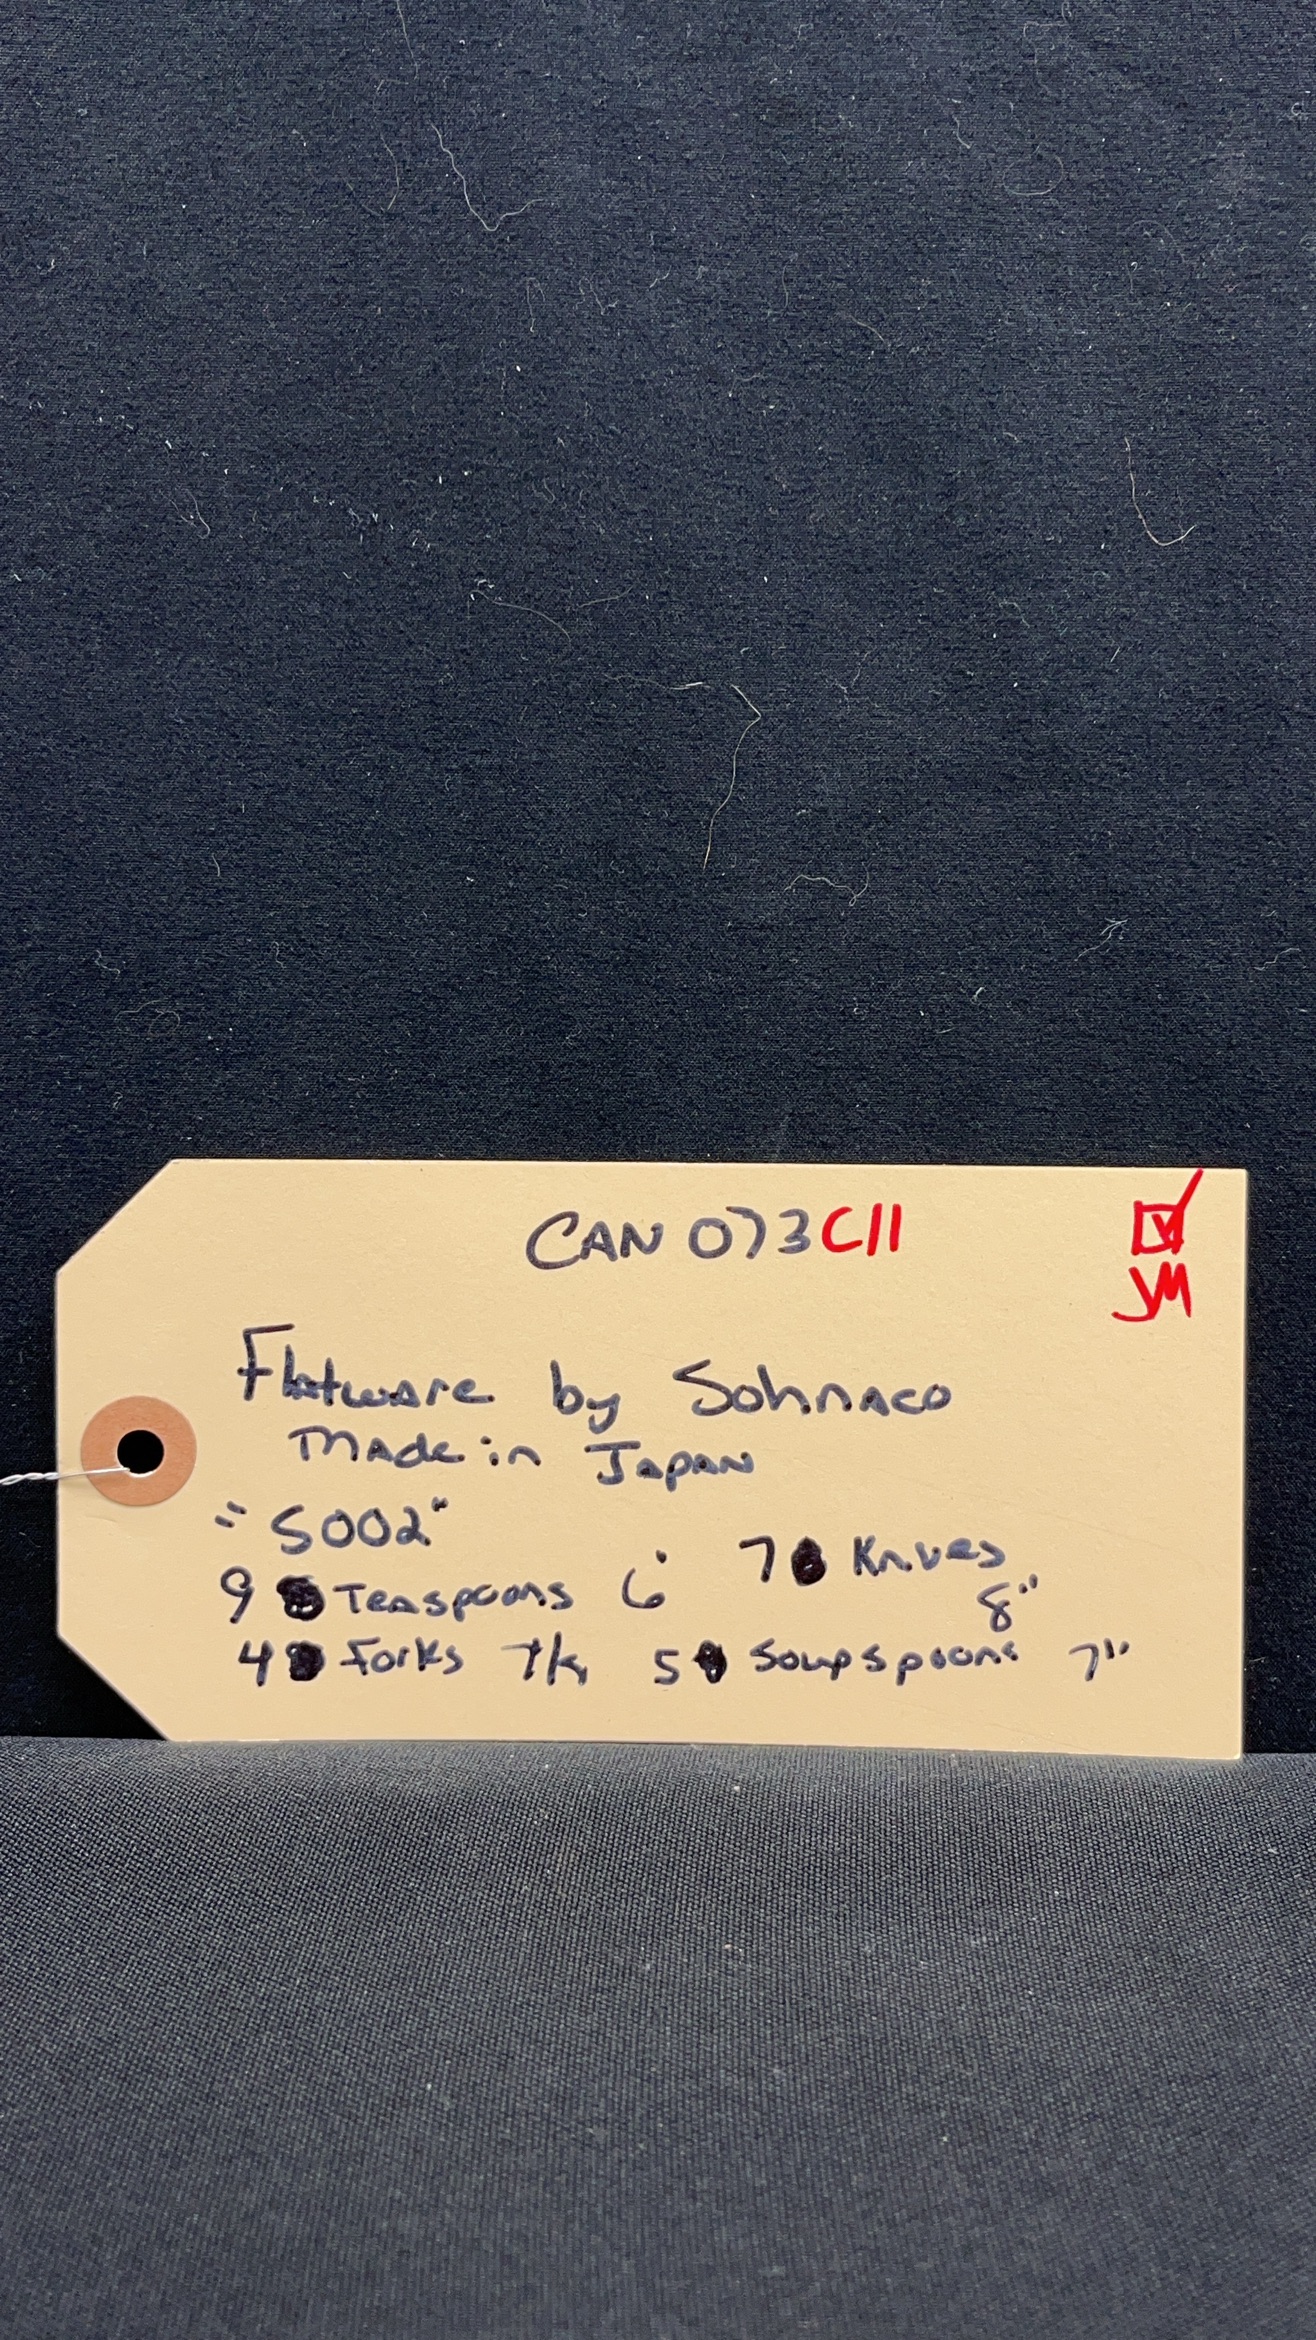 CAN 073C11
JM
Flatware by Sohnaco
Made in Japan
"S002"
9 Teaspoons 6" 7 Knives 8"
4 Forks 5 Soupspoons 7"